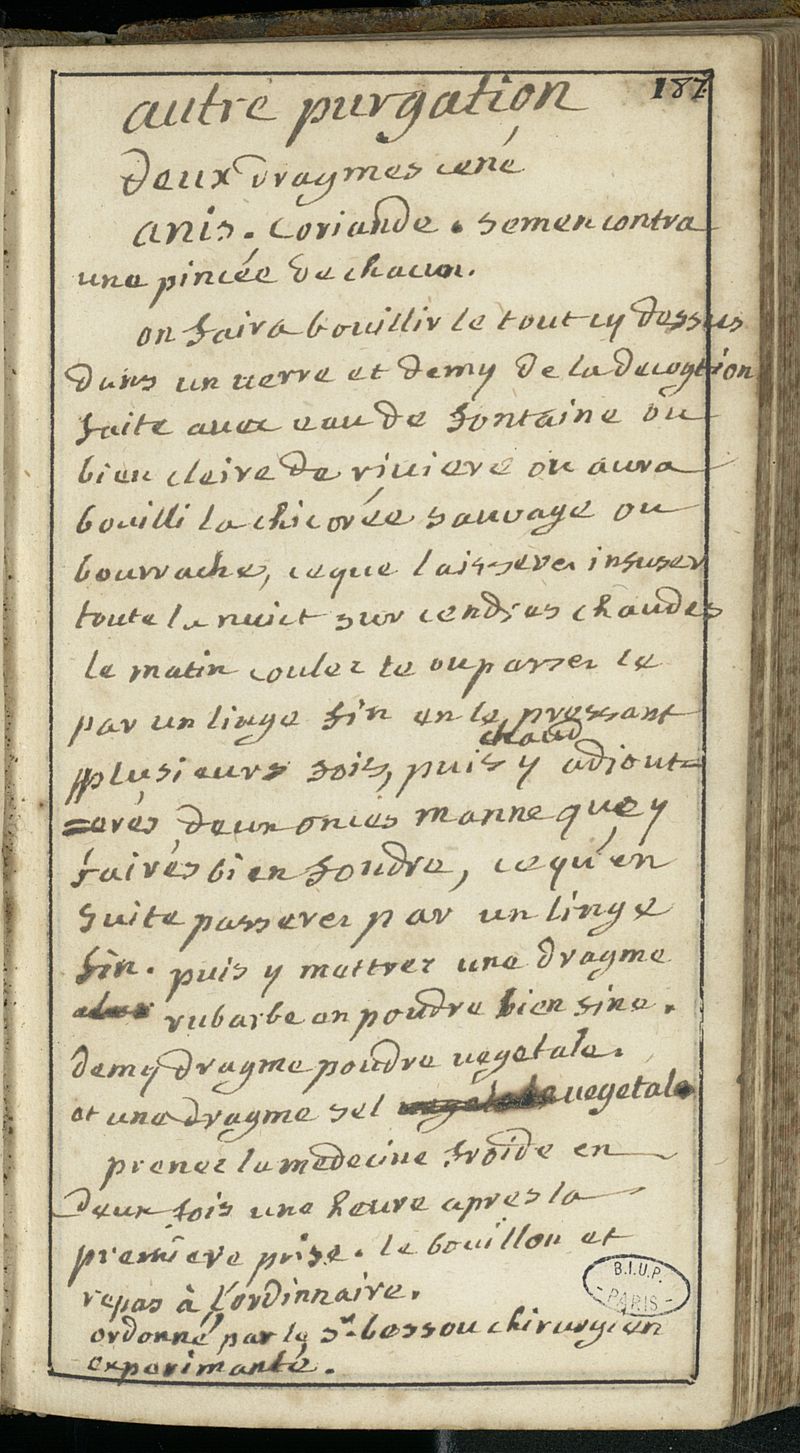 187.
autre purgation
Deux Dragmes cené
Anis. Coriande. semencontra
une pincée De chacun.
on faira bouillir le tout cy dessus
dans un verre et demy De la decogtion
faite avec eau De fontaine ou
bien cleire De riviere ou aura
bouilli la chicorée sauvage ou
bourrache, ceque laisserez infuser
toute la nuict sur cendres chaudes
le matin coulez le ou passez le
par un linge fin en le pressant
chaud
plusieurs fois, puis y adjout=
=erés deux onces manne que y
fairés bien fondre, ce qu'en
suite passerez par un linge
fin. puis y mettrez une dragme
rubarbe en poudre bien fine.
demy dragme poudre vegetale.
et une dragme sel vegetale
prenez la medecine froide en
deux fois une heure apres la
premiere prise. le bouillon et
repas à l'ordinnaire.
ordonné par le Sr. bessou chirurgien
experimanté.
B.I.U.P.
PARIS